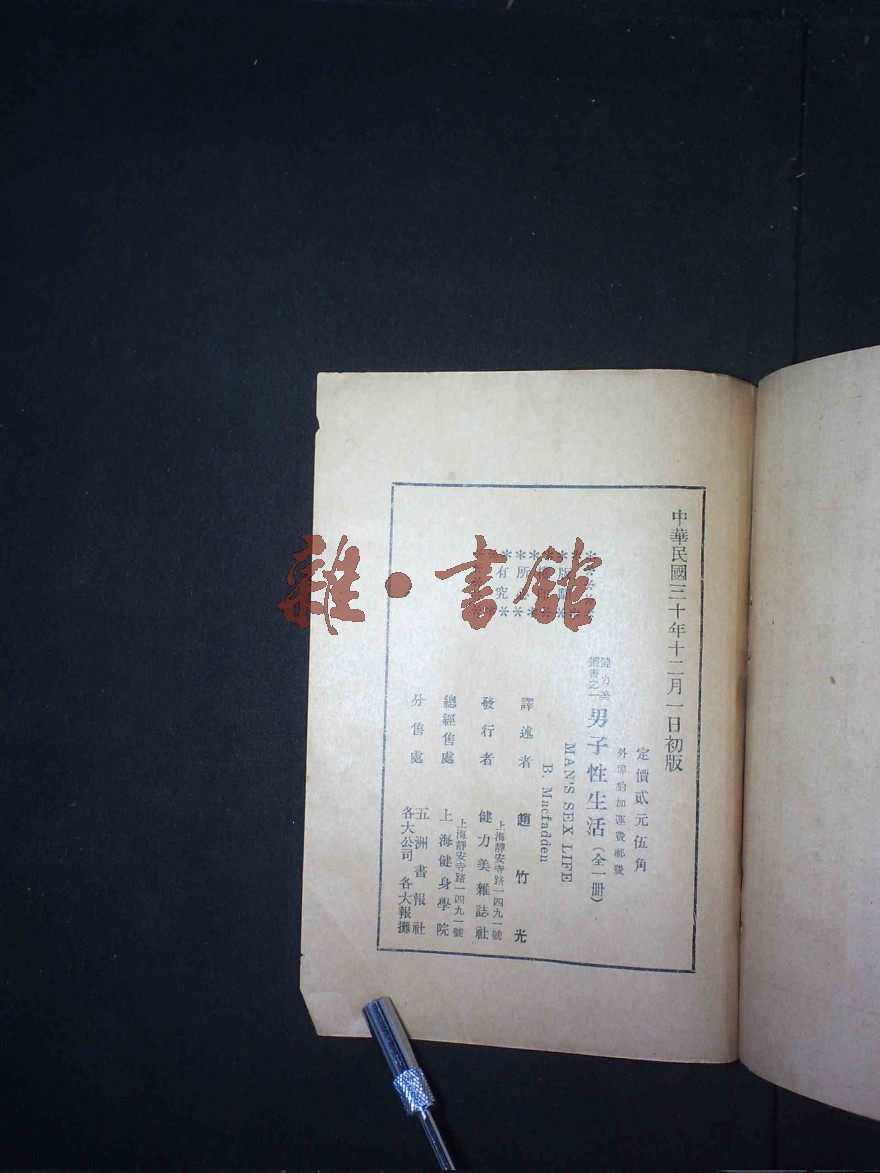 中華民國三十年十二月一日初版
定價貳元伍角
外埠酌加運費郵費
健力美
叢書之一
男子性生活（全一冊）
MAN'S SEX LIFE
B. Macfadden
版
所
有
究
譯述者 趙竹光
上海靜安寺路一四九一號
發行者 健力美雜誌社
上海靜安寺路一四九一號
總經售處 上海健身學院
分售處 五洲書報社
各大公司 各大報攤
雜·書館